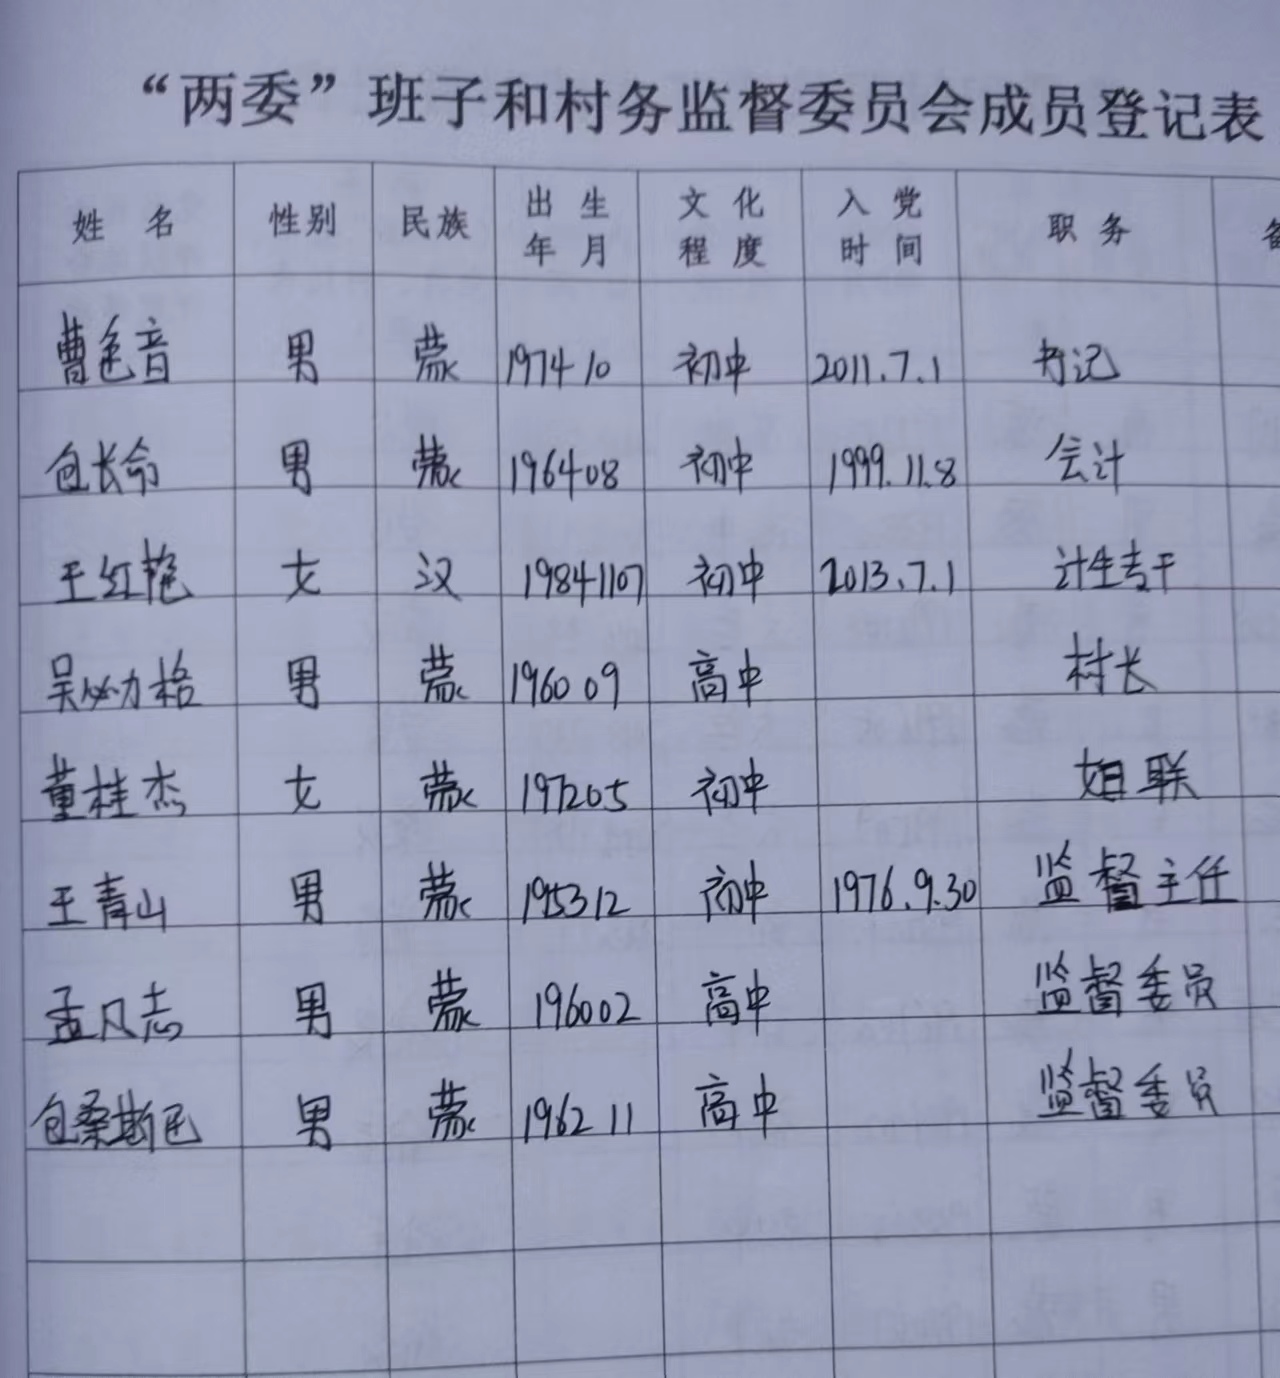 “两委”班子和村务监督委员会成员登记表
姓名 性别 民族 出生年月 文化程度 入党时间 职务 备
曹色音 男 蒙 197410 初中 2011.7.1 书记
包长命 男 蒙 196408 初中 1999.11.8 会计
王红艳 女 汉 19841107 初中 2013.7.1 计生专干
吴必力格 男 蒙 196009 高中 村长
董桂杰 女 蒙 197205 初中 妇联
王青山 男 蒙 195312 初中 1976.9.30 监督主任
孟凡志 男 蒙 196002 高中 监督委员
包桑斯巴 男 蒙 196211 高中 监督委员